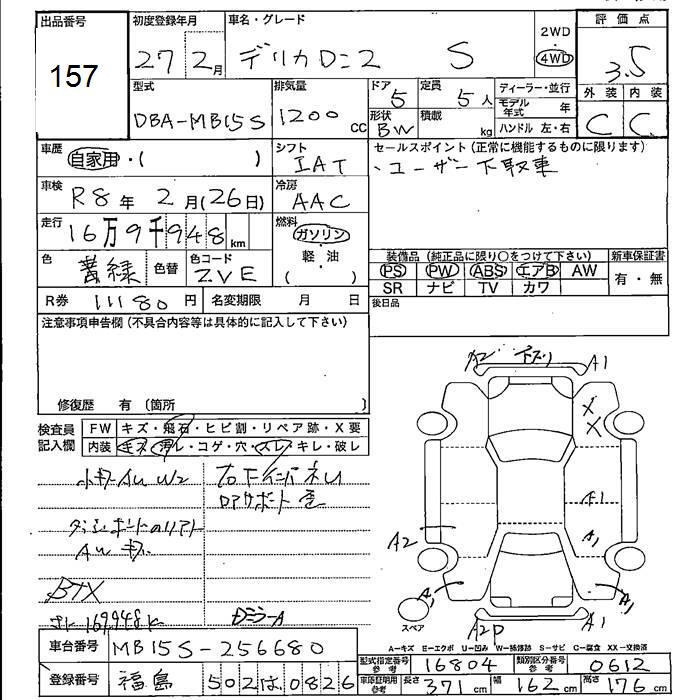 出品番号 初度登録年月 車名・グレード 2WD・4WD 評価点
157 27年2月 デリカD:2 S 3.5
型式 排気量 ドア 定員 ディーラー・並行 外装 内装
DBA-MB15S 1200cc 5 5人 モデル年式 年 C C
形状 BW 積載 kg ハンドル 左・右
車歴 自家用・( ) シフト IAT セールスポイント (正常に機能するものに限ります)
・ユーザー下取車
車検 R8年2月(26日) 冷房 AAC
走行 16万9千948km 燃料 ガソリン・軽・油 ( )
色 黄緑 色替 色コード ZVE
装備品 (純正品に限り○をつけて下さい) 新車保証書
PS PW ABS エアB AW 有・無
SR ナビ TV カワ
R券 11180円 名変期限 月 日 後日品
注意事項申告欄 (不具合内容等は具体的に記入して下さい)
修復歴 有 〔箇所 〕
検査員記入欄 FW キズ・飛石・ヒビ割・リペア跡・X要
内装 キズ・汚レ・コゲ・穴・スレ・キレ・破レ
AU W2
ロアサポート
AU
BTX
169,948K
DミラーA
A2 下スリ A1
X
X
A1
A2 A1
A1 A1
スペア A2P A1
A-キズ E-エクボ U-凹み W-補修跡 S-サビ C-腐食 XX-交換済
車台番号 MB15S-256680
型式指定番号 参考 16804 類別区分番号 参考 0612
登録番号 福島502は0826
車庫証明用 参考 長さ 371cm 幅 162cm 高さ 176cm